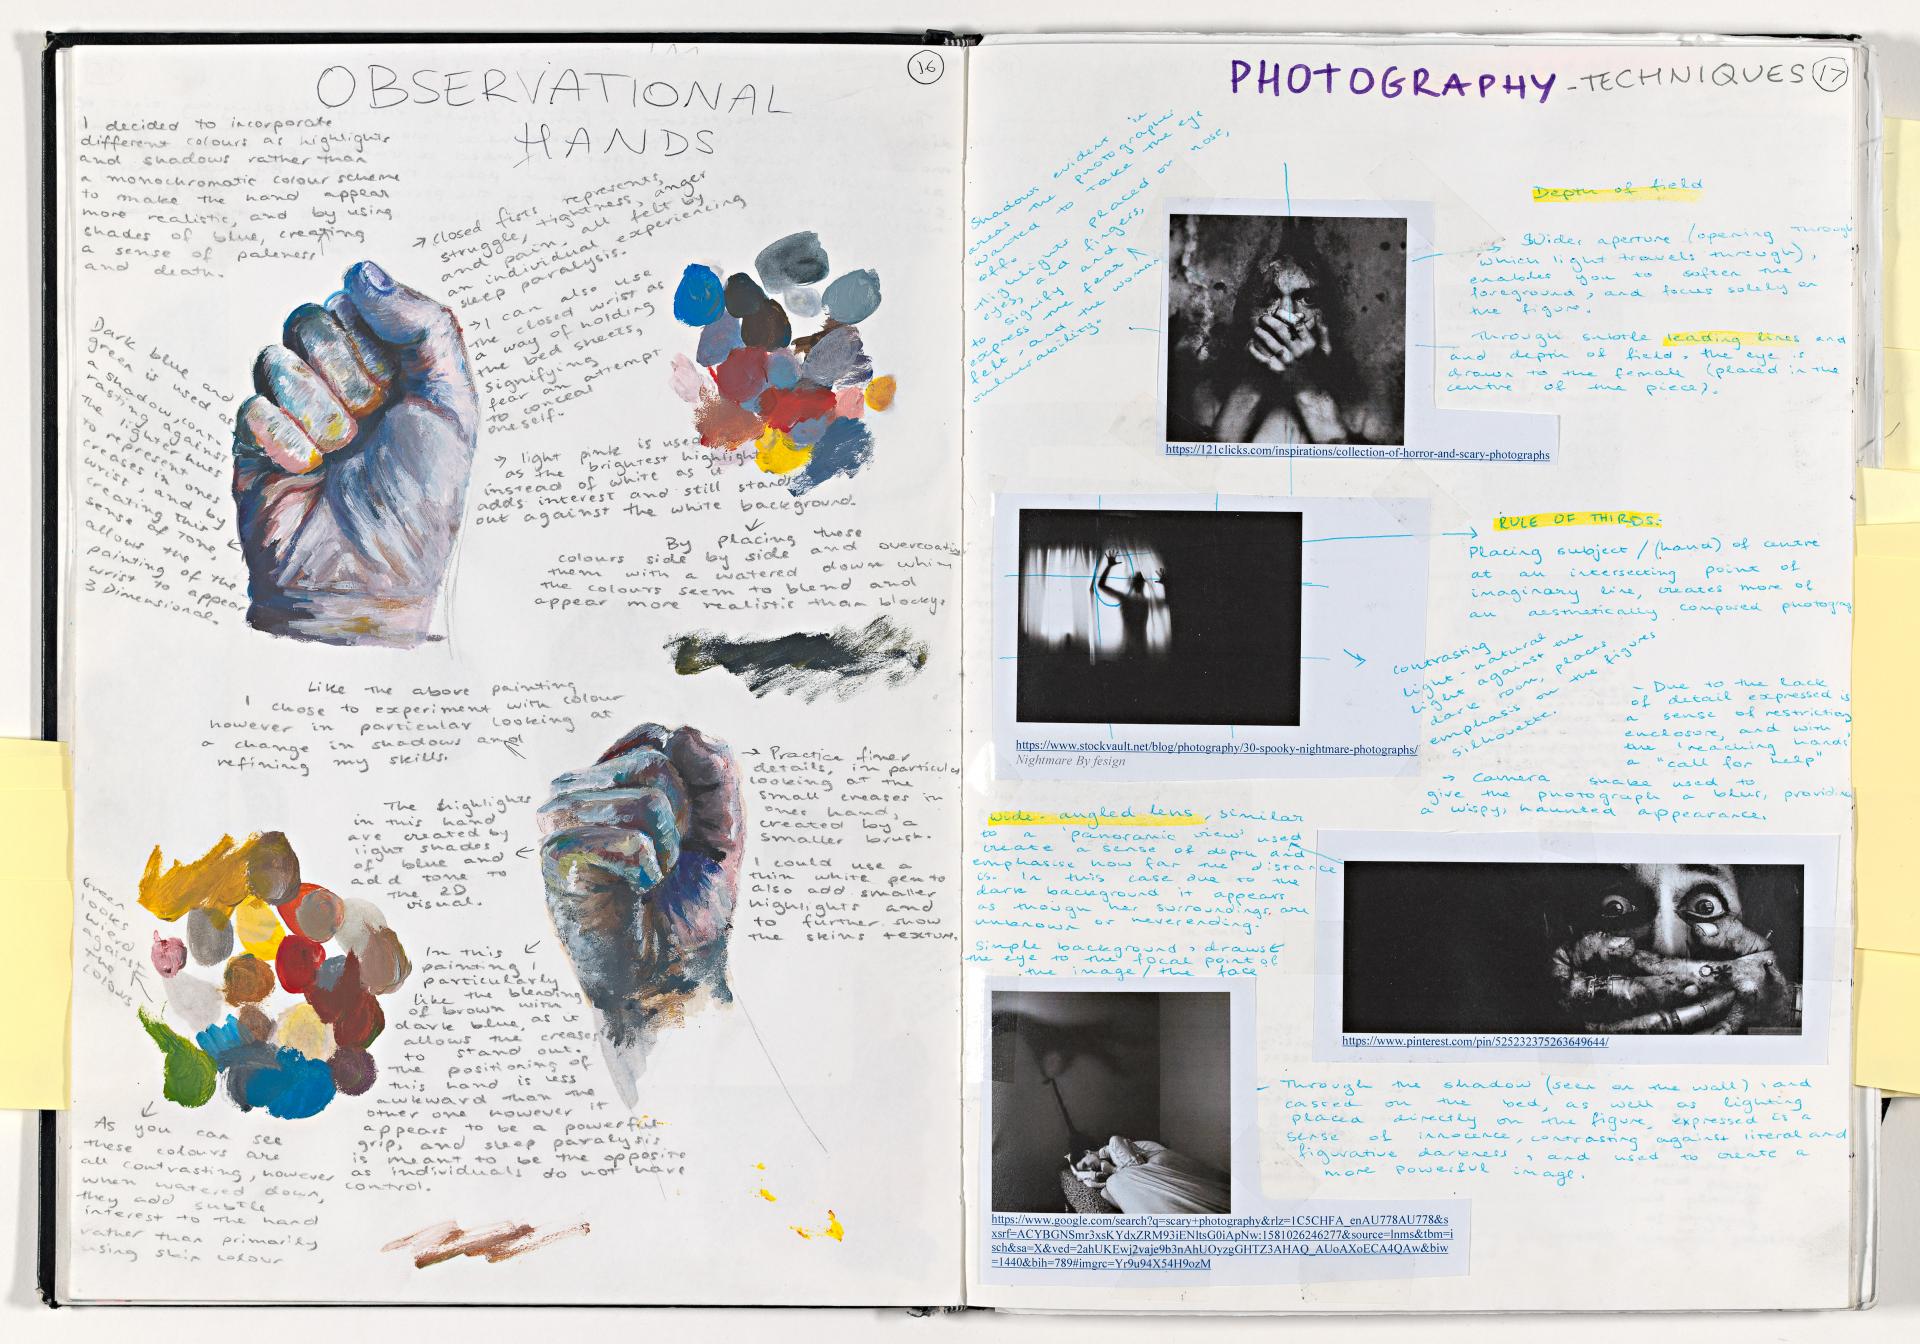 OBSERVATIONAL
HANDS
16
I decided to incorporate
different colours as highlights
and shadows rather than
a monochromatic colour scheme
to make the hand appear
more realistic, and by using
shades of blue, creating
a sense of paleness
and death.
→ closed fists represents,
struggle, tightness, anger
and pain, all felt by
an individual experiencing
sleep paralysis.
→ I can also use
the closed wrist as
a way of holding
the bed sheets,
signifying
fear an attempt
to conceal
oneself.
Dark blue and
green is used as
a shadow, cont-
rasting against
the lighter hues
to represent
creases in ones
wrist, and by
creating this
sense of tone,
allows the
painting of the
wrist to appear
3 Dimensional.
→ light pink is used
as the brightest highlight
instead of white as it
adds interest and still stands
out against the white background.
By placing these
colours side by side and overcoating
them with a watered down
the colours seem to blend and
appear more realistic than blocky.
Like the above painting
I chose to experiment with colour
however in particular looking at
a change in shadows and
refining my skills.
→ Practice finer
details, in particular
looking at the
small creases in
ones hand,
created by a
smaller brush.
I could use a
thin white pen to
also add smaller
highlights and
to further show
the skins texture.
The highlights
in this hand
are created by
light shades
of blue and
add tone to
the 2D
visual.
Green
looks
wierd
against
the
colours
In this
painting I
particularly
like the blending
of brown with
dark blue, as it
allows the creases
to stand out.
The positioning of
this hand is less
awkward than the
other one however it
appears to be a powerful
grip, and sleep paralysis
is meant to be the opposite
as individuals do not have
control.
As you can see
these colours are
all contrasting, however
when watered down,
they add subtle
interest to the hand
rather than primarily
using skin colour
PHOTOGRAPHY - TECHNIQUES
17
Shadows evident in
areas the photographer
wanted to take the eye
off.
Highlights placed on nose,
eyes, and fingers,
to signify and
express the fear
felt, and the woman
vulnerability.
Depth of field
→ Wider aperture (opening through
which light travels through),
enables you to soften the
foreground, and focus solely on
the figure.
Through subtle leading lines and
and depth of field, the eye is
drawn to the female (placed in the
centre of the piece).
https://121clicks.com/inspirations/collection-of-horror-and-scary-photographs
RULE OF THIRDS:
Placing subject / (hand) of centre
at an intersecting point of
imaginary line, creates more of
an aesthetically composed photograp
contrasting
light - natural
light against the
dark room, places
emphasis on the figures
silhouette.
- Due to the lack
of detail expressed is
a sense of restriction
enclosure, and with
the 'reaching hands'
a "call for help"
→ Camera shake used to
give the photograph a blur, providing
a wispy, haunted appearance.
https://www.stockvault.net/blog/photography/30-spooky-nightmare-photographs/
Nightmare By fesign
Wide-angled lens, similar
to a 'panoramic view' used
create a sense of depth and
emphasise how far the distance
is. In this case due to the
dark background it appears
as though her surroundings are
unknown or neverending.
Simple background, draws
the eye to the focal point of
the image/the face
https://www.pinterest.com/pin/525232375263649644/
- Through the shadow (seen on the wall), and
casted on the bed, as well as lighting
placed directly on the figure, expressed is a
sense of innocence, contrasting against literal and
figurative darkness, and used to create a
more powerful image.
https://www.google.com/search?q=scary+photography&rlz=1C5CHFA_enAU778AU778&s
xsrf=ACYBGNSmr3xsKYdxZRM93iENltsG0iApNw:1581026246277&source=lnms&tbm=i
sch&sa=X&ved=2ahUKEwj2vaje9b3nAhUOyzgGHTZ3AHAQ_AUoAXoECA4QAw&biw
=1440&bih=789#imgrc=Yr9u94X54H9ozM